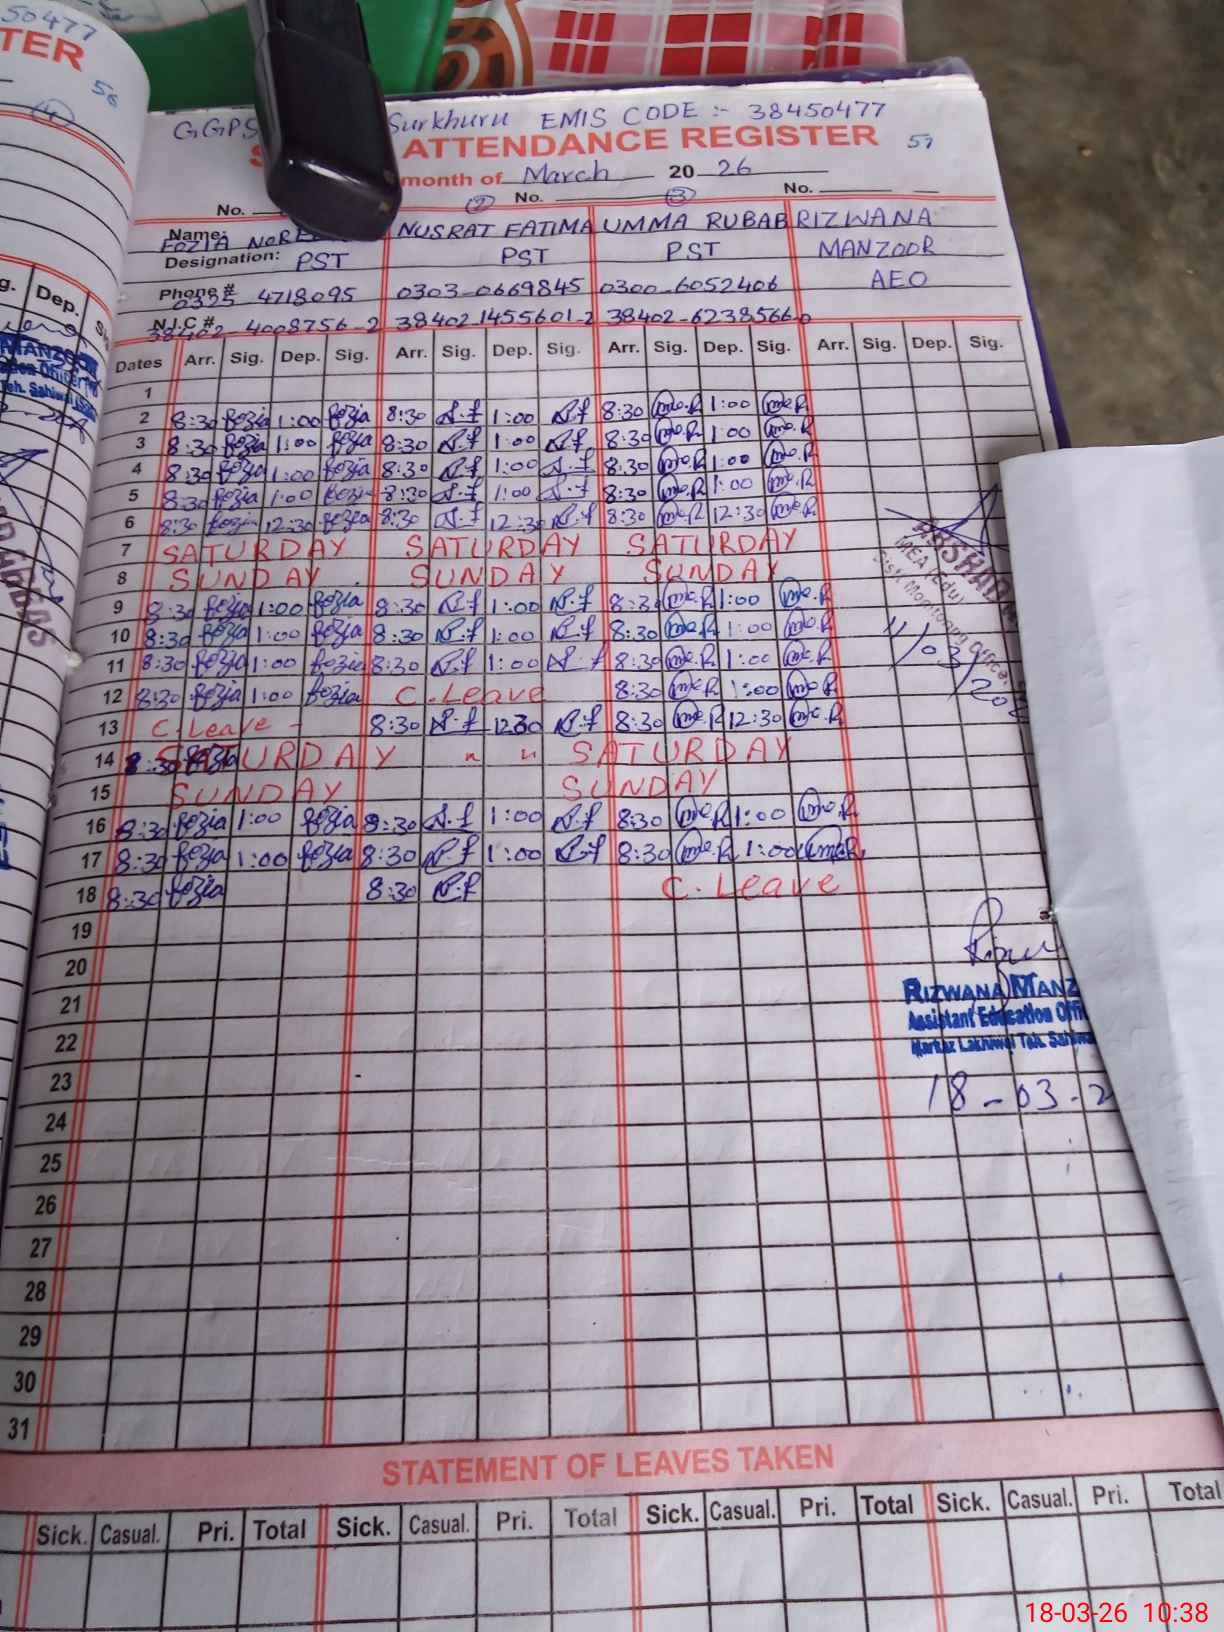 50477
TER
56
4
GGPS Surkhuru EMIS CODE :- 38450477
ATTENDANCE REGISTER 57
month of March 20 26
No. 2 No. 3 No.
Name: FOZIA NUSRAT FATIMA UMMA RUBAB RIZWANA
Designation: PST PST PST MANZOOR
Phone # 0325 4718095 0303-0669845 0300-6052406 AEO
N.I.C # 38402-4008756-2 38402-1455601-2 38402-6238566-0
g. Dep.
Dates Arr. Sig. Dep. Sig. Arr. Sig. Dep. Sig. Arr. Sig. Dep. Sig. Arr. Sig. Dep. Sig.
1
2 8:30 fozia 1:00 fozia 8:30 N.f 1:00 N.f 8:30 me.R 1:00 me.R
3 8:30 fozia 1:00 fozia 8:30 N.f 1:00 N.f 8:30 me.R 1:00 me.R
4 8:30 fozia 1:00 fozia 8:30 N.f 1:00 N.f 8:30 me.R 1:00 me.R
5 8:30 fozia 1:00 fozia 8:30 N.f 1:00 N.f 8:30 me.R 1:00 me.R
6 8:30 fozia 12:30 fozia 8:30 N.f 12:30 N.f 8:30 me.R 12:30 me.R
7 SATURDAY SATURDAY SATURDAY
8 SUNDAY SUNDAY SUNDAY
9 8:30 fozia 1:00 fozia 8:30 N.f 1:00 N.f 8:30 me.R 1:00 me.R
10 8:30 fozia 1:00 fozia 8:30 N.f 1:00 N.f 8:30 me.R 1:00 me.R
11 8:30 fozia 1:00 fozia 8:30 N.f 1:00 N.f 8:30 me.R 1:00 me.R
12 8:30 fozia 1:00 fozia C.Leave 8:30 me.R 1:00 me.R
13 C.Leave - 8:30 N.f 1230 N.f 8:30 me.R 12:30 me.R
14 SATURDAY " " SATURDAY
15 SUNDAY SUNDAY
16 8:30 fozia 1:00 fozia 8:30 N.f 1:00 N.f 8:30 me.R 1:00 me.R
17 8:30 fozia 1:00 fozia 8:30 N.f 1:00 N.f 8:30 me.R 1:00 me.R
18 8:30 fozia 8:30 N.f C.Leave
19
20
21
22
23
24
25
26
27
28
29
30
31
MEA (Edu)
Distt Monitoring Office
11/03/
RIZWANA MANZ
Assistant Education Offi
Markaz Lakhiwal Teh. Sahiwa
18-03-2
STATEMENT OF LEAVES TAKEN
Sick. Casual. Pri. Total Sick. Casual. Pri. Total Sick. Casual. Pri. Total Sick. Casual. Pri. Total
18-03-26 10:38